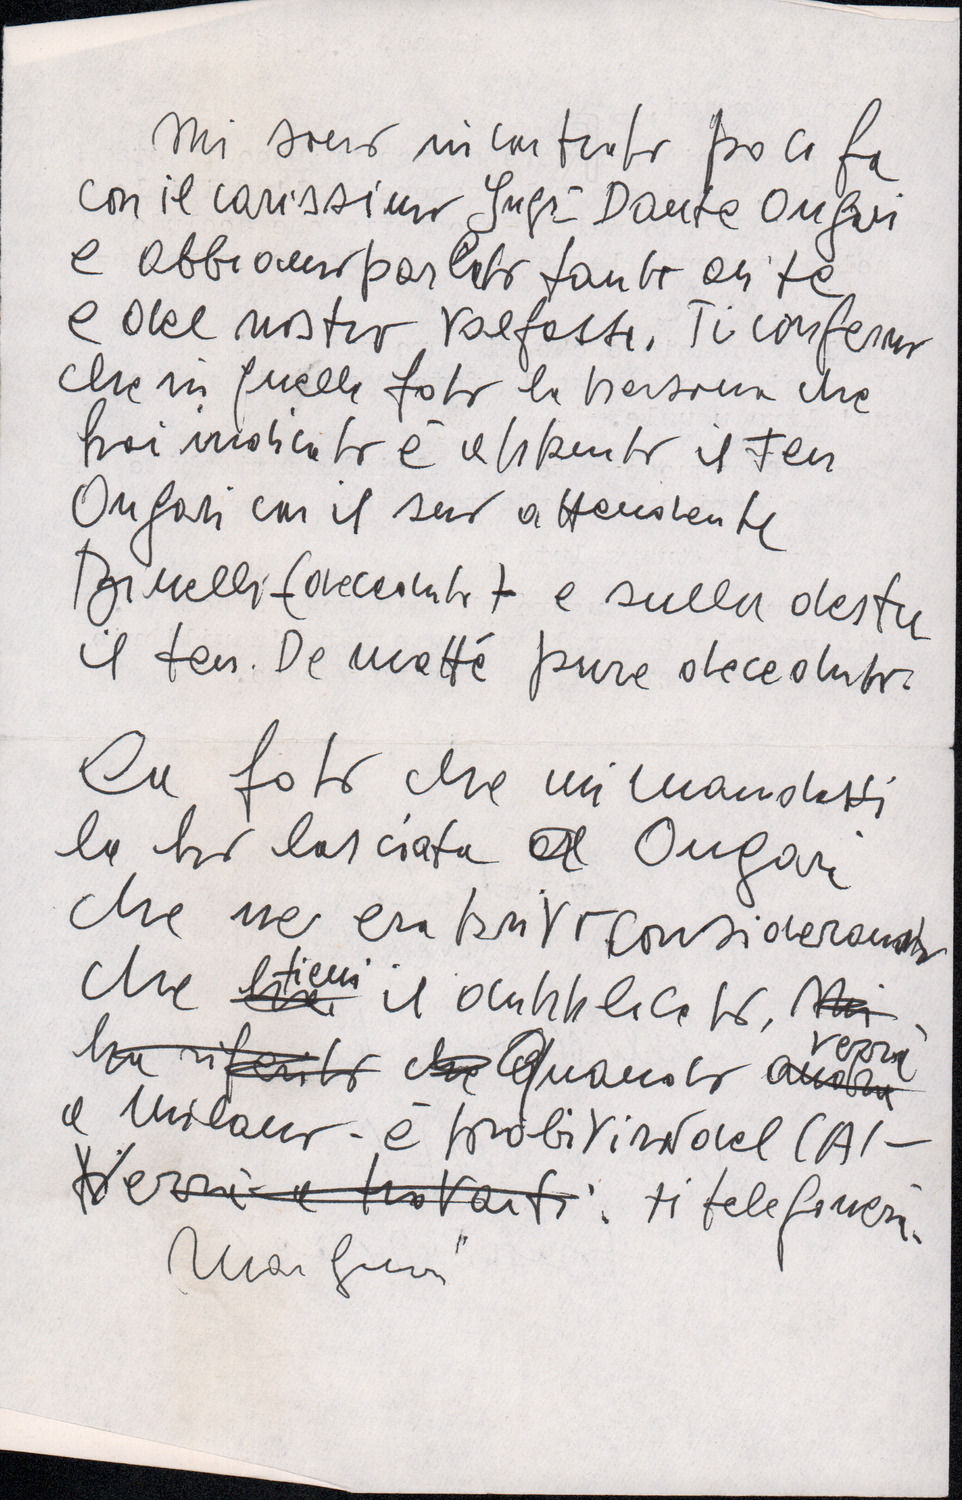 Mi sono incontrato poco fa
con il carissimo Ing. Dante Ongari
e abbiamo parlato tanto di te
e del nostro Valfassa. Ti confermo
che in quella foto la persona che
hai indicato è appunto il Ten
Ongari con il suo attendente
Binelli (deceduto) e sulla destra
il ten. De mattè pure deceduto.
La foto che mi mandasti
la ho lasciata al Ongari
che ne era privo considerando
che tieni il dupplicato, Mi
ha riferito che Quando verrà
a Milano - è probiviro del CAI -
Verrà a trovarti. ti telefonerà.